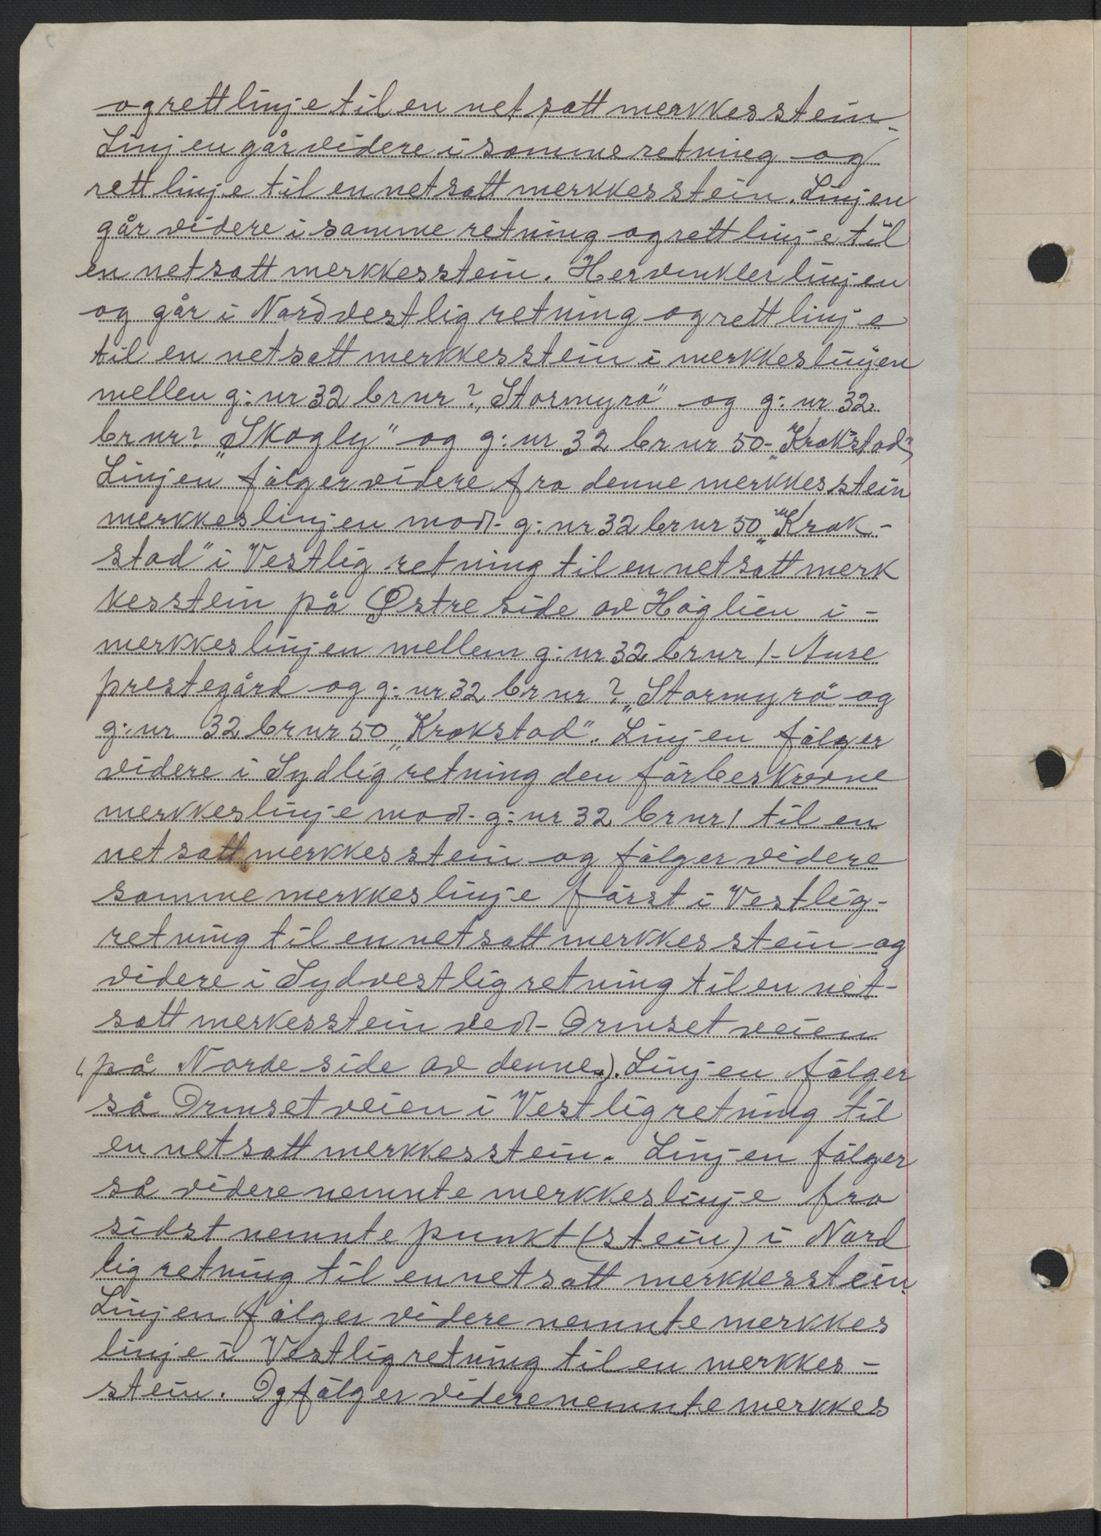 og rett linje til en netsatt merkkesstein.
Linjen går videre i samme retning og
rett linje til en netsatt merkkesstein. Linjen
går videre i samme retning og rett linje til
en netsatt merkkesstein. Her vinkler linjen
og går i Nordvestlig retning og rett linje
til en netsatt merkkesstein i merkkeslinjen
mellen g: nr 32 br nr ? „Stormyra" og g: nr 32
br nr ? „Skogly" og g: nr 32 br nr 50 - „Krokstad"
Linjen fålger videre fra denne merkkesstein
merkkeslinjen mod - g: nr 32 br nr 50 „Krok-
stad" i Vestlig retning til en netsatt merk
kesstein på Østre side av Håglien i -
merkkeslinjen mellem g: nr 32 br nr 1 - Aure
prestegård og g: nr 32 br nr ? „Stormyra" og
g: nr 32 br nr 50 „Krokstad". Linjen fålger
videre i Sydlig retning den fårbeskrevne
merkkeslinje mod - g: nr 32 br nr 1 til en
netsatt merkkesstein og fålger videre
samme merkkeslinje fårst i Vestlig -
retning til en netsatt merkkesstein og
videre i Sydvestlig retning til en net-
satt merkesstein ved - Ormset veien
(på Norde side av denne). Linjen fålger
så Ormset veien i Vestlig retning til
en netsatt merkkesstein. Linjen fålger
så videre nemnte merkkeslinje fra
sidst nemnte punkt (stein) i Nord
lig retning til en netsatt merkkesstein.
Linjen fålger videre nemnte merkkes
linje i Vestlig retning til en merkkes -
stein. Og fålger videre nemnte merkkes